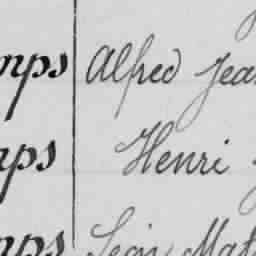 mps Alfred Jean
mps Henri
mps Léon Mat